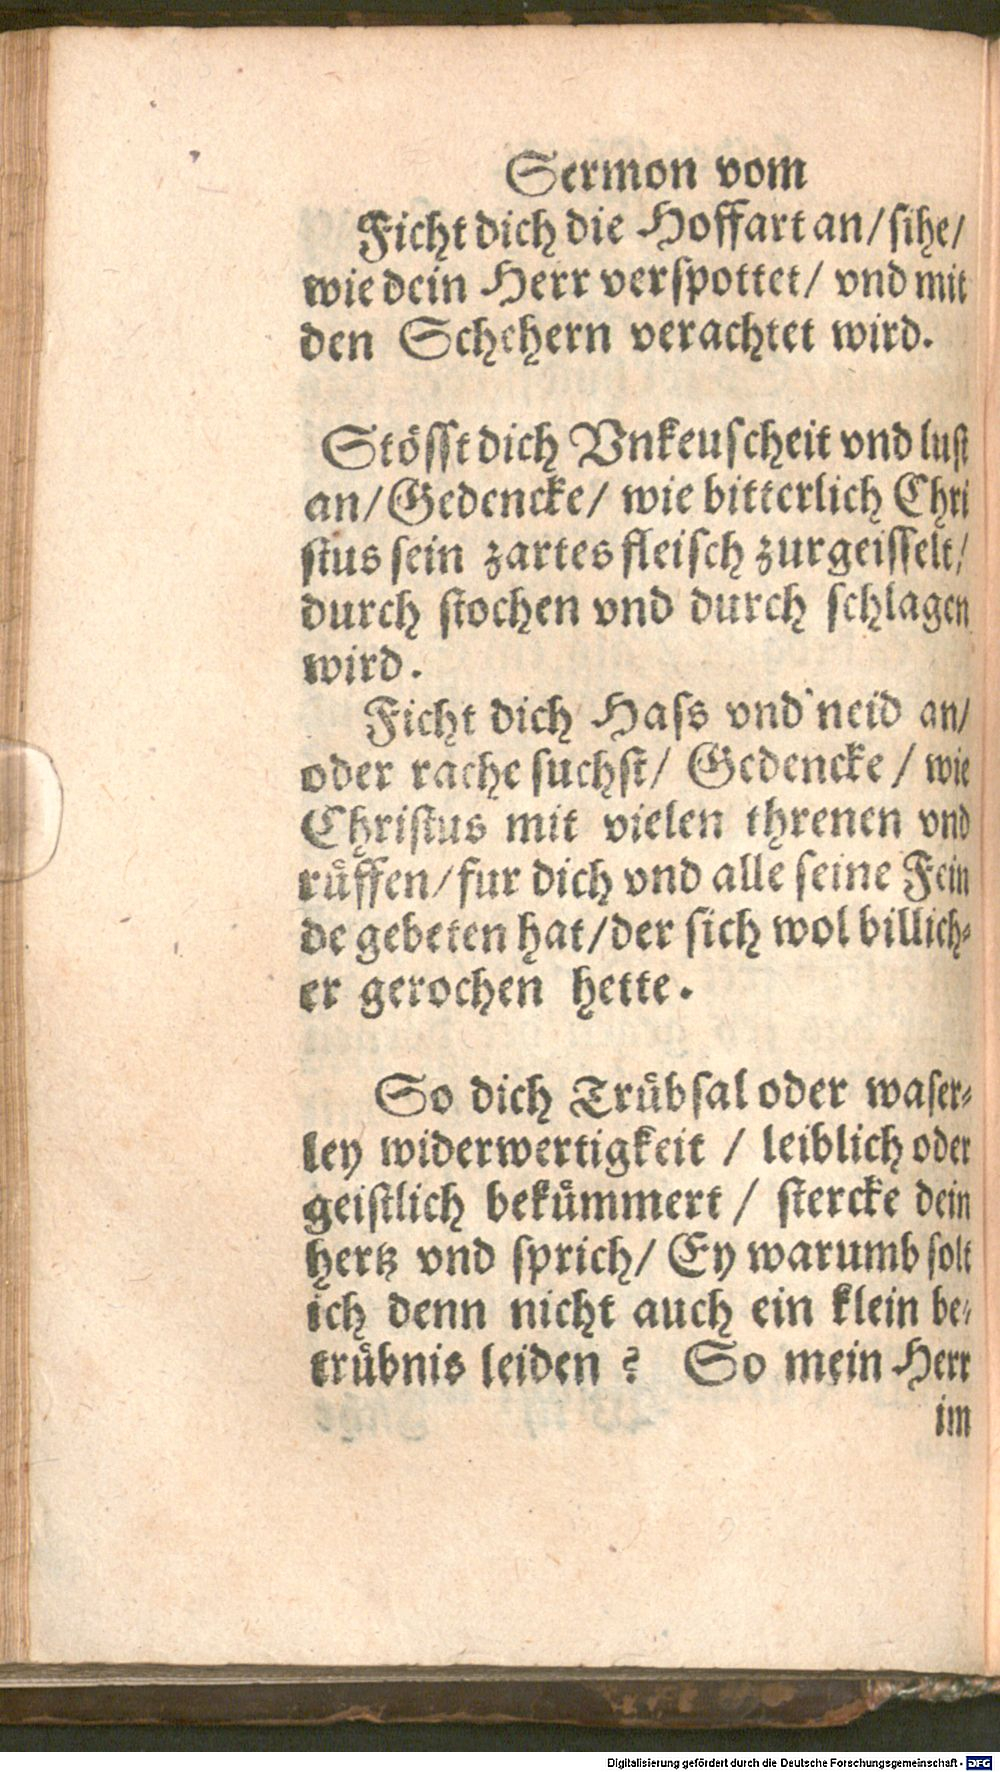 Sermon vom
Ficht dich die Hoffart an/ sihe/
wie dein Herr verspottet/ vnd mit
den Schehern verachtet wird.
Stösst dich Vnkeuscheit vnd lust
an/ Gedencke/ wie bitterlich Chri
stus sein zartes fleisch zurgeisselt/
durch stochen vnd durch schlagen
wird.
Ficht dich Hass vnd neid an/
oder rache suchst/ Gedencke / wie
Christus mit vielen threnen vnd
rüffen/ fur dich vnd alle seine Fein
de gebeten hat/ der sich wol billich-
er gerochen hette.
So dich Trübsal oder waser-
ley widerwertigkeit / leiblich oder
geistlich bekümmert / stercke dein
hertz vnd sprich/ Ey warumb solt
ich denn nicht auch ein klein be-
trübnis leiden ? So mein Herr
im
Digitalisierung gefördert durch die Deutsche Forschungsgemeinschaft - DFG